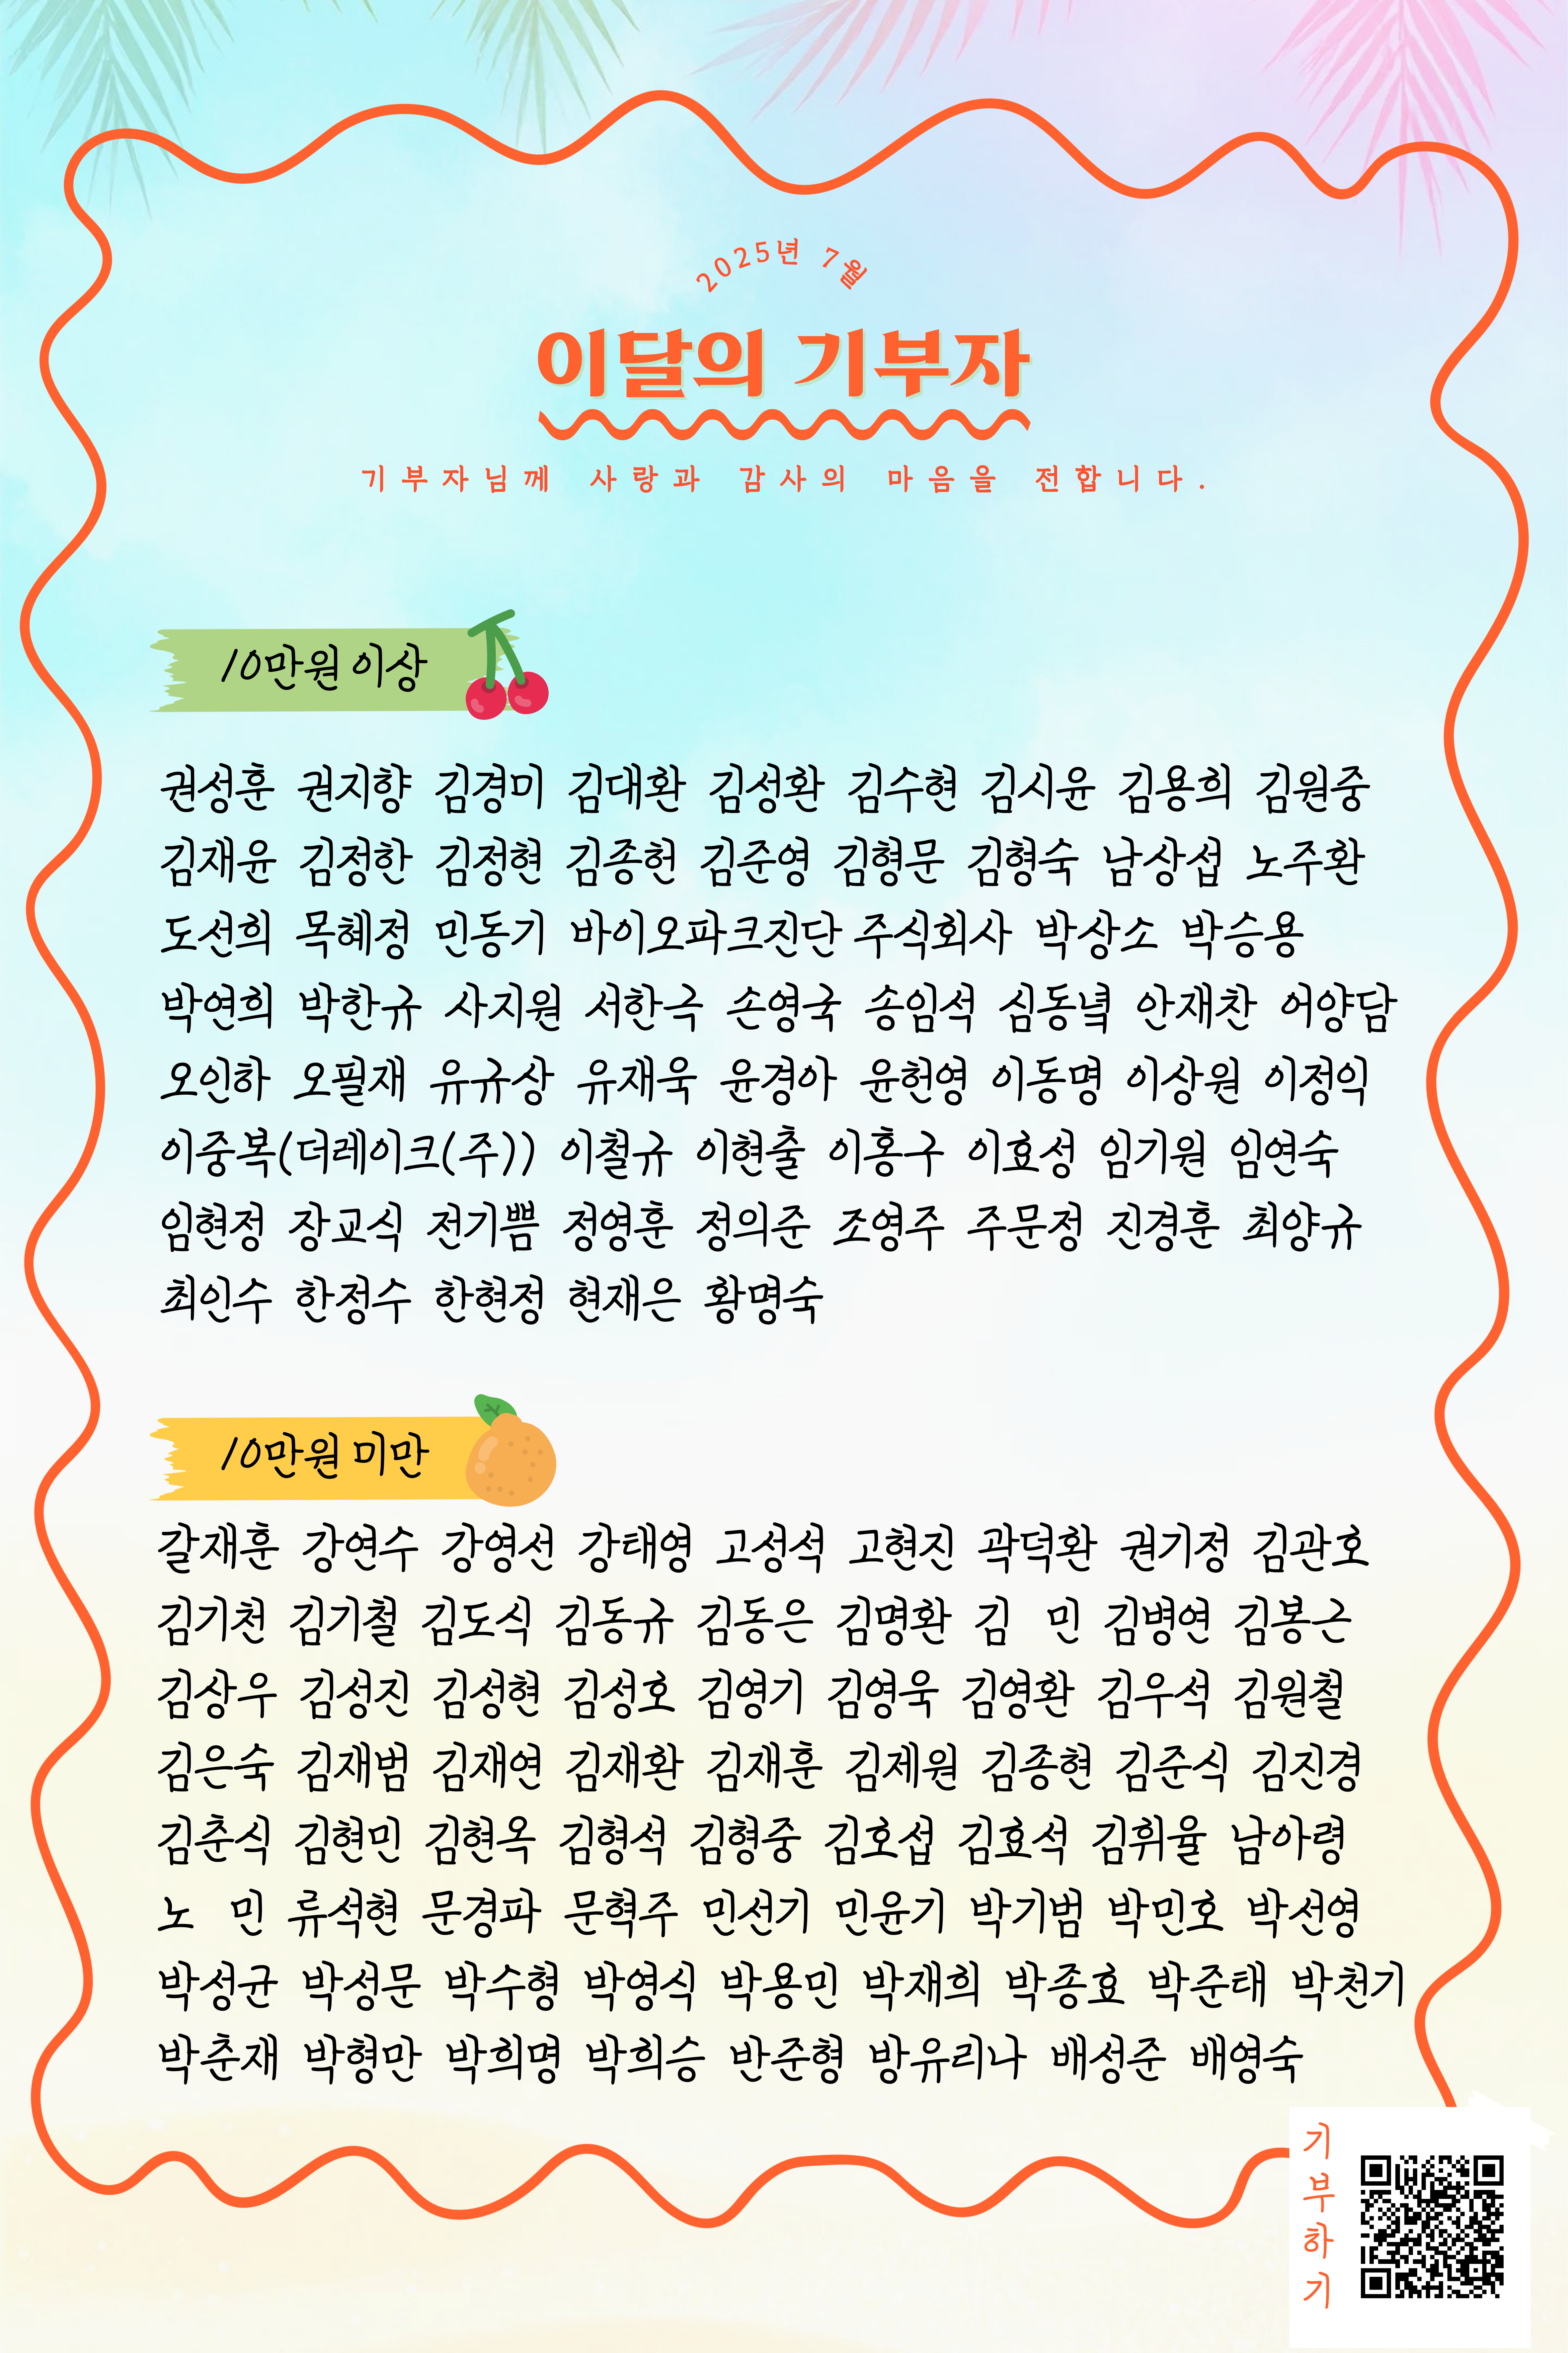 2025년 7월
이달의 기부자
기부자님께 사랑과 감사의 마음을 전합니다.
10만원 이상
권성훈 권지향 김경미 김대환 김성환 김수현 김시윤 김용희 김원중
김재윤 김정한 김정현 김종헌 김준영 김형문 김형숙 남상섭 노주환
도선희 목혜정 민동기 바이오파크진단 주식회사 박상소 박승용
박연희 박한규 사지원 서한극 손영국 송임석 심동녘 안재찬 어양담
오인하 오필재 유규상 유재욱 윤경아 윤헌영 이동명 이상원 이정익
이중복(더레이크(주)) 이철규 이현출 이홍구 이효성 임기원 임연숙
임현정 장교식 전기쁨 정영훈 정의준 조영주 주문정 진경훈 최양규
최인수 한정수 한현정 현재은 황명숙
10만원 미만
갈재훈 강연수 강영선 강태영 고성석 고현진 곽덕환 권기정 김관호
김기천 김기철 김도식 김동규 김동은 김명환 김 민 김병연 김봉근
김상우 김성진 김성현 김성호 김영기 김영욱 김영환 김우석 김원철
김은숙 김재범 김재연 김재환 김재훈 김제원 김종현 김준식 김진경
김춘식 김현미 김현옥 김형석 김형중 김호섭 김효석 김휘율 남아령
노 민 류석현 문경파 문혁주 민선기 민윤기 박기범 박민호 박선영
박성균 박성문 박수형 박영식 박용민 박재희 박종효 박준태 박천기
박춘재 박형만 박희명 박희승 반준형 방유리나 배성준 배영숙
기부하기